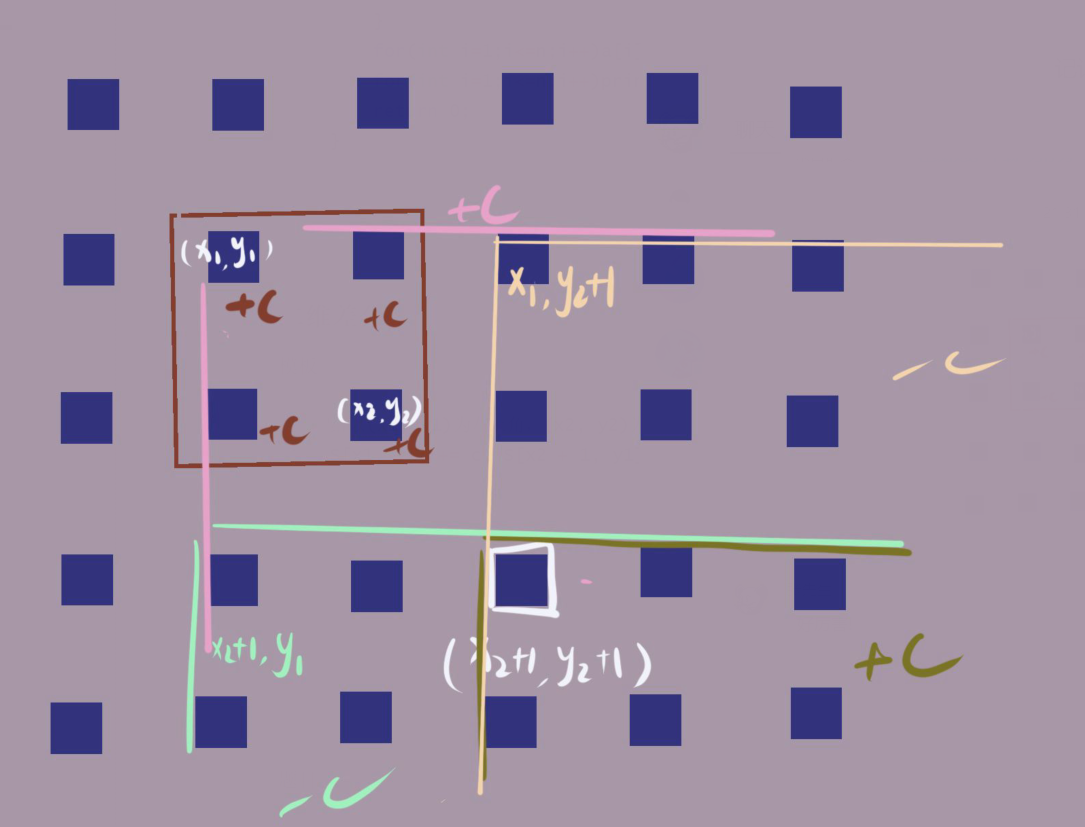 +C
(x₁, y₁)
x₁, y₂+1
+C
+C
- C
(x₂, y₂)
+C
+C
x₂+1, y₁
(x₂+1, y₂+1)
+C
- C